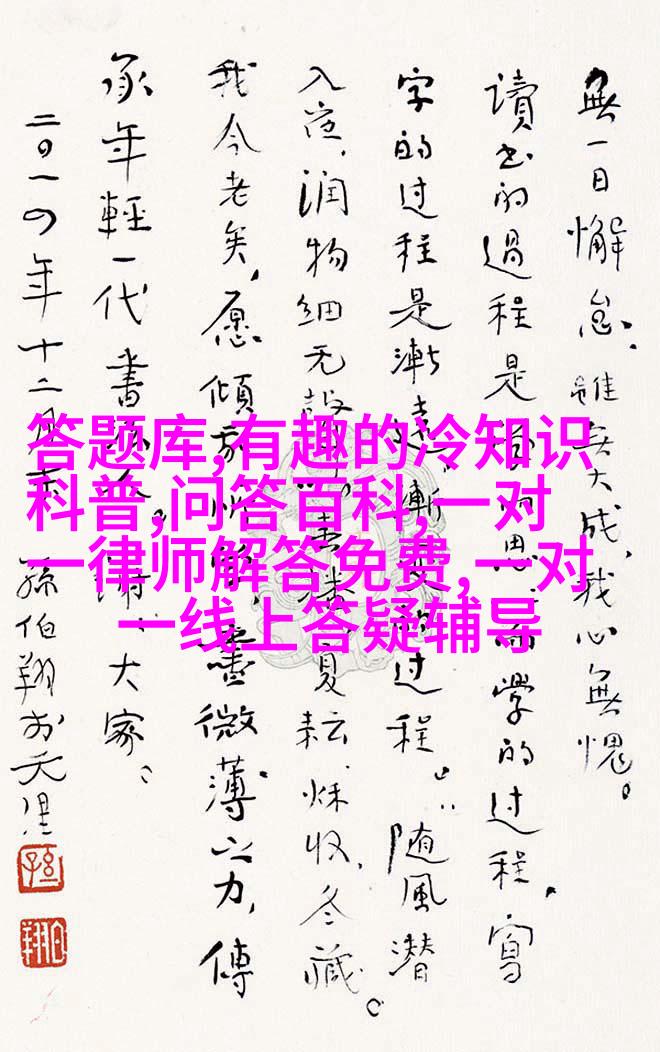 無一日懈怠，雖無大成，我心無愧。
讀书的過程是思而學的过程，寫
字的过程是漸漸的过程。随風潜
入夜，润物细无聲。春播夏耘，秌收，冬藏。
我今老矣，愿傾我所能，盡微薄之力，傳
承年輕一代書谢大家。
二〇一〇年十二月 孫伯翔於天津
答题库,有趣的冷知识
科普,问答百科,一对
一律师解答免费,一对
一线上答疑辅导